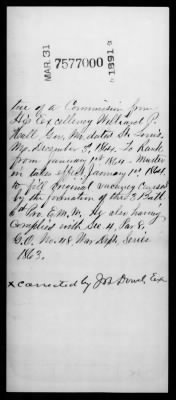 MAR 31
7577000
1891
tue of a Commission from
His Excellency Willard P.
Hall Gov. Mo. dated St. Louis
Mo. December 3^d, 1864. To Rank
from January 1st 1864. Muster
in takes effect January 1st 1864.
to fill original vacancy caused
by the formation of the 3^d Batt.
Pro. E.M.M. He also having
complied with Sec 4, Par 8,
G.O. No. 48, War Dept, Series
1863.
x corrected by